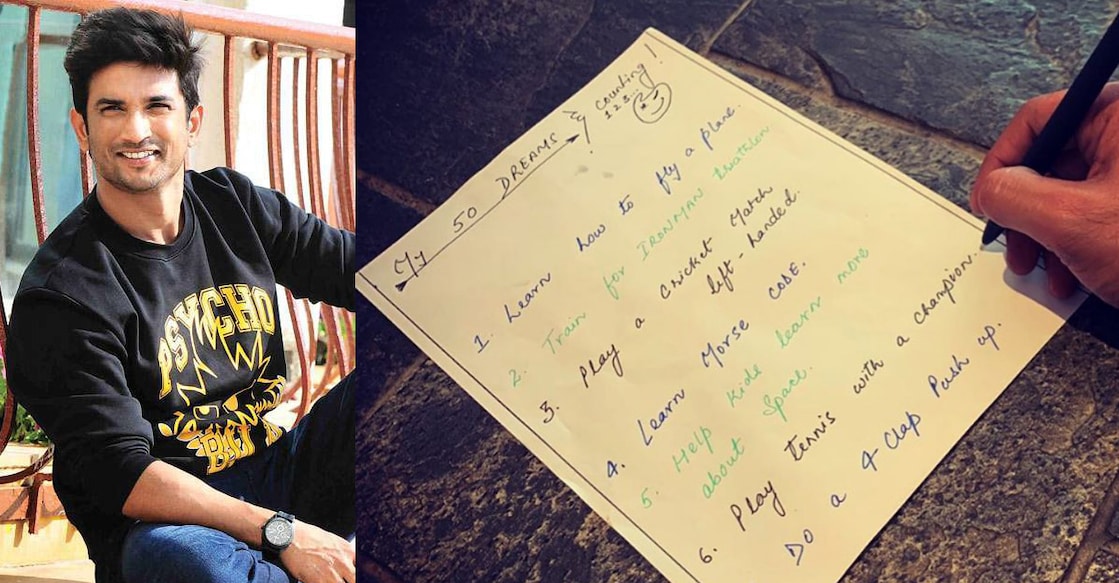 PSYCHO
BAT
My 50 DREAMS & Counting!
1 2 3...
1. Learn how to fly a plane.
2. Train for IRONMAN triathlon
3. Play a cricket Match
left-handed.
4. Learn Morse CODE.
5. Help kids learn more
about Space.
6. Play tennis with a champion.
Do a 4 Clap Push up.